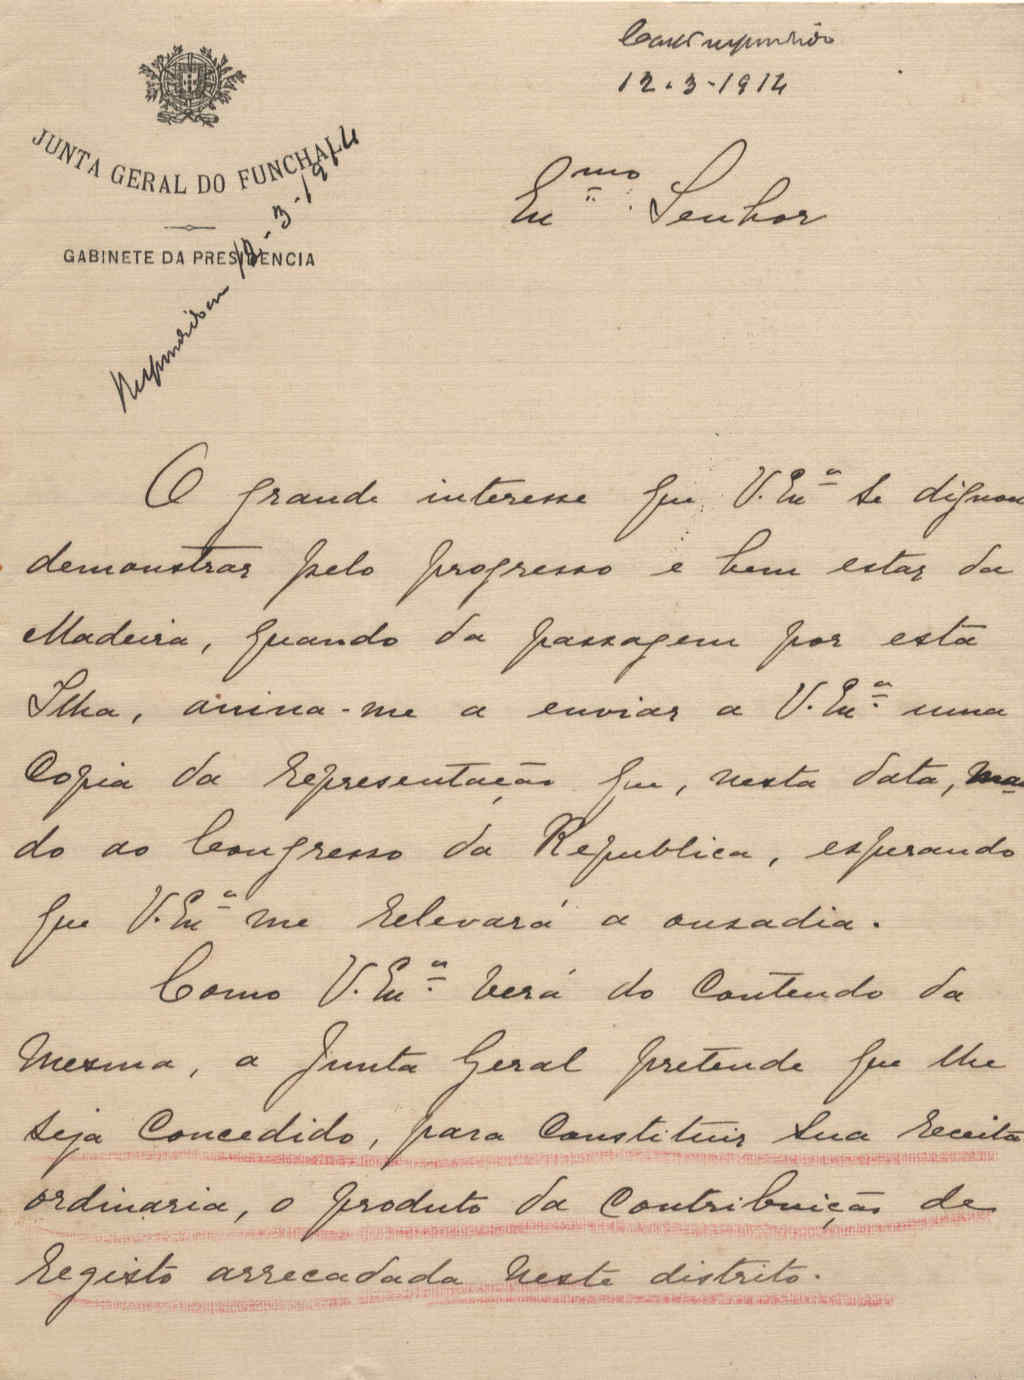 JUNTA GERAL DO FUNCHAL
GABINETE DA PRESIDENCIA
Respondido em 12-3-1914
12-3-1914
Exmo Senhor
O grande interesse que V. Exa se dignou
demonstrar pelo progresso e bem estar da
Madeira, quando da passagem por esta
Ilha, anima-me a enviar a V. Exa uma
Copia da Representação que, nesta data, man
do ao Congresso da Republica, esperando
que V. Exa me relevará a ousadia.
Como V. Exa verá do conteudo da
mesma, a Junta Geral pretende que lhe
seja concedido, para constituir sua receita
ordinaria, o produto da contribuição de
registo arrecadada neste distrito.